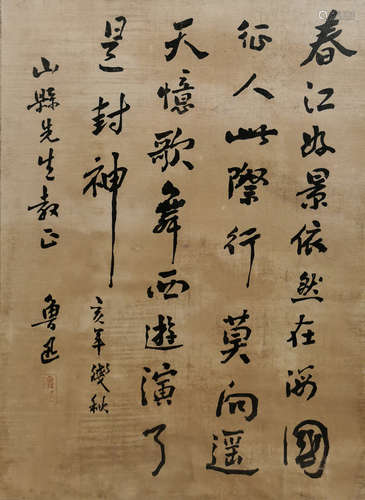 春江好景依然在海國
征人此際行莫向遥
天憶歌舞西遊演了
是封神
亥年殘秋
山縣先生教正
魯迅